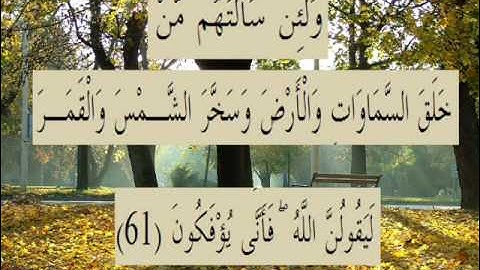 وَلَئِن سَأَلْتَهُم مَّنْ
خَلَقَ السَّمَاوَاتِ وَالْأَرْضَ وَسَخَّرَ الشَّمْسَ وَالْقَمَرَ
لَيَقُولُنَّ اللَّهُ ۖ فَأَنَّى يُؤْفَكُونَ (61)